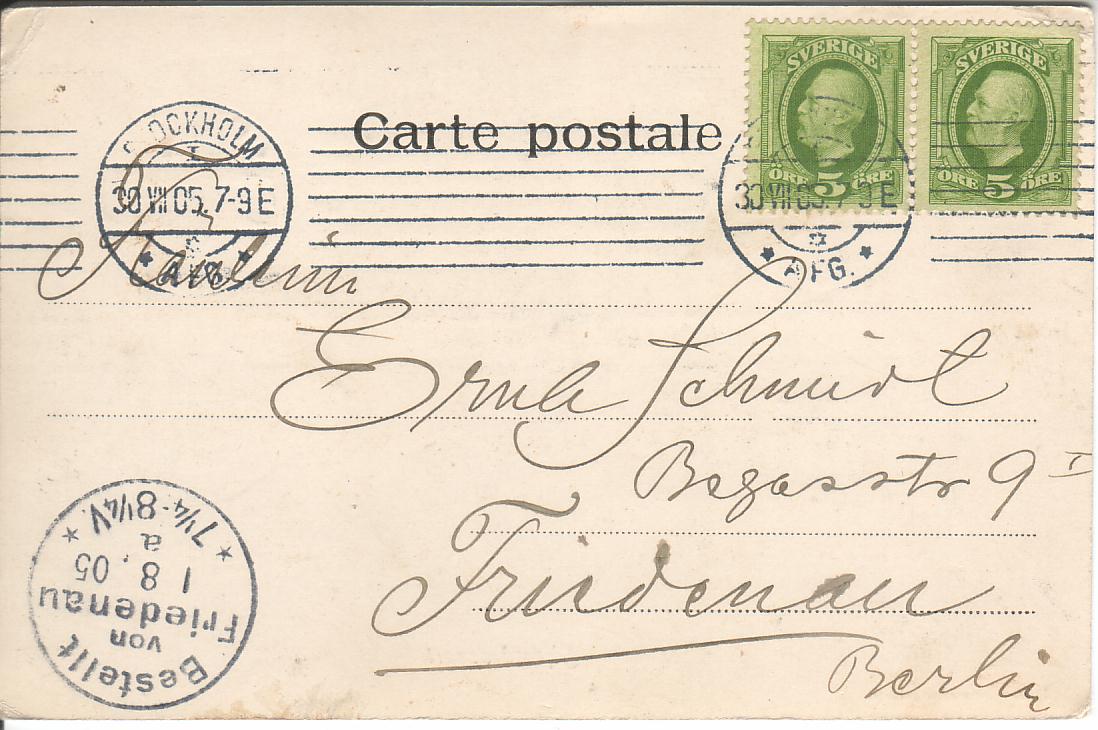 Carte postale
SVERIGE
5
ÖRE ÖRE
SVERIGE
5
ÖRE ÖRE
STOCKHOLM
1
30 VII 05. 7-9 E
AFG.
30 VII 05. 7-9 E
AFG.
Fräulein
Erna Schmidt
Begasstr 9 I
Friedenau
Berlin
Bestellt
von
Friedenau
1 8 . 05
a
7¼-8¼V.